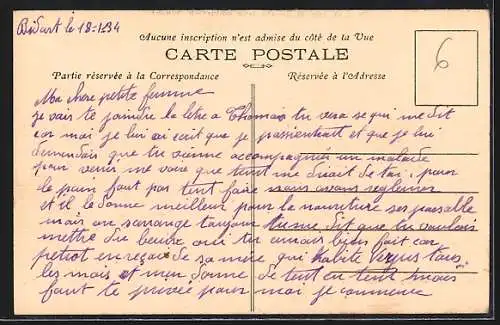 Bidart le 18-1-34
Aucune inscription n'est admise du côté de la Vue
CARTE POSTALE
Partie réservée à la Correspondance
Réservée à l'Adresse
6
Mon chere petite femme
je vais te joindre la letre a Thomas tu vera se qui me dit
car moi je lui ai ecrit que je et que je lui
demendais que tu vienne accompagnés un malade
pour venir me voire que tent me disait de tai. pour
le pain faut pas tent faire nous avons
et il le donne meilleur pour la nouriture ses pasable
mais on sarange toujour tu me dit que tu voulais
mettre du beure oui bien fait car
petiot en reçoi de sa mere qui habite
les mois et men donne de tent en tent mais
faut te privée pour moi je commence